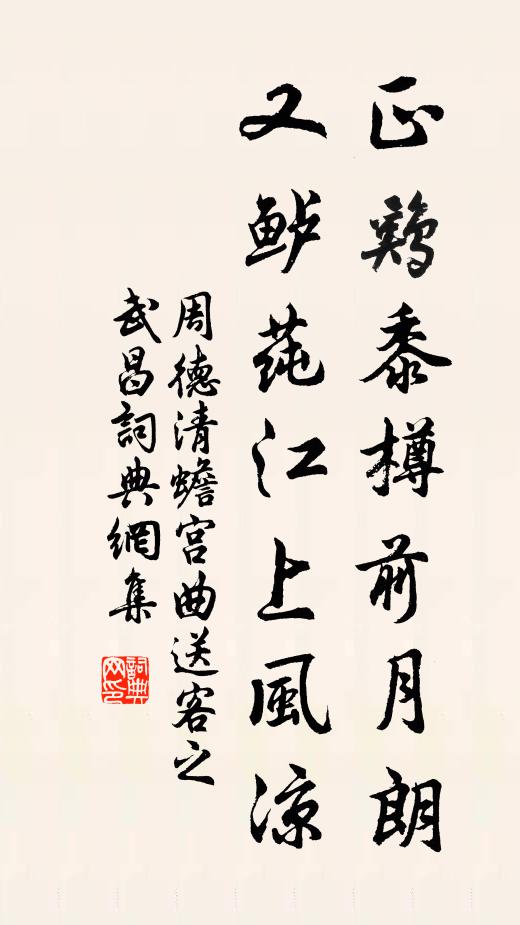 正鷄黍樽前月朗
又鲈莼江上風涼
周德清蟾宫曲送客之
武昌詞典網集
詞典网印